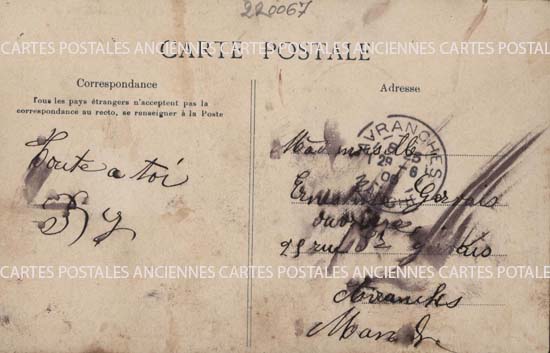 220067
CARTE POSTALE
CARTES POSTALES ANCIENNES CARTES POSTALES ANCIENNES CARTES POTALE
Correspondance
Tous les pays étrangers n'acceptent pas la
correspondance au recto, se renseigner à la Poste
Adresse
Toute a toi
AVRANCHES
Mademoiselle
Ernestine Gervais
ouvrière
25 rue St Gervais
Avranches
Manche
CARTES POSTALES ANCIENNES CARTES POSTALES ANCIENNES CARTES POTALE